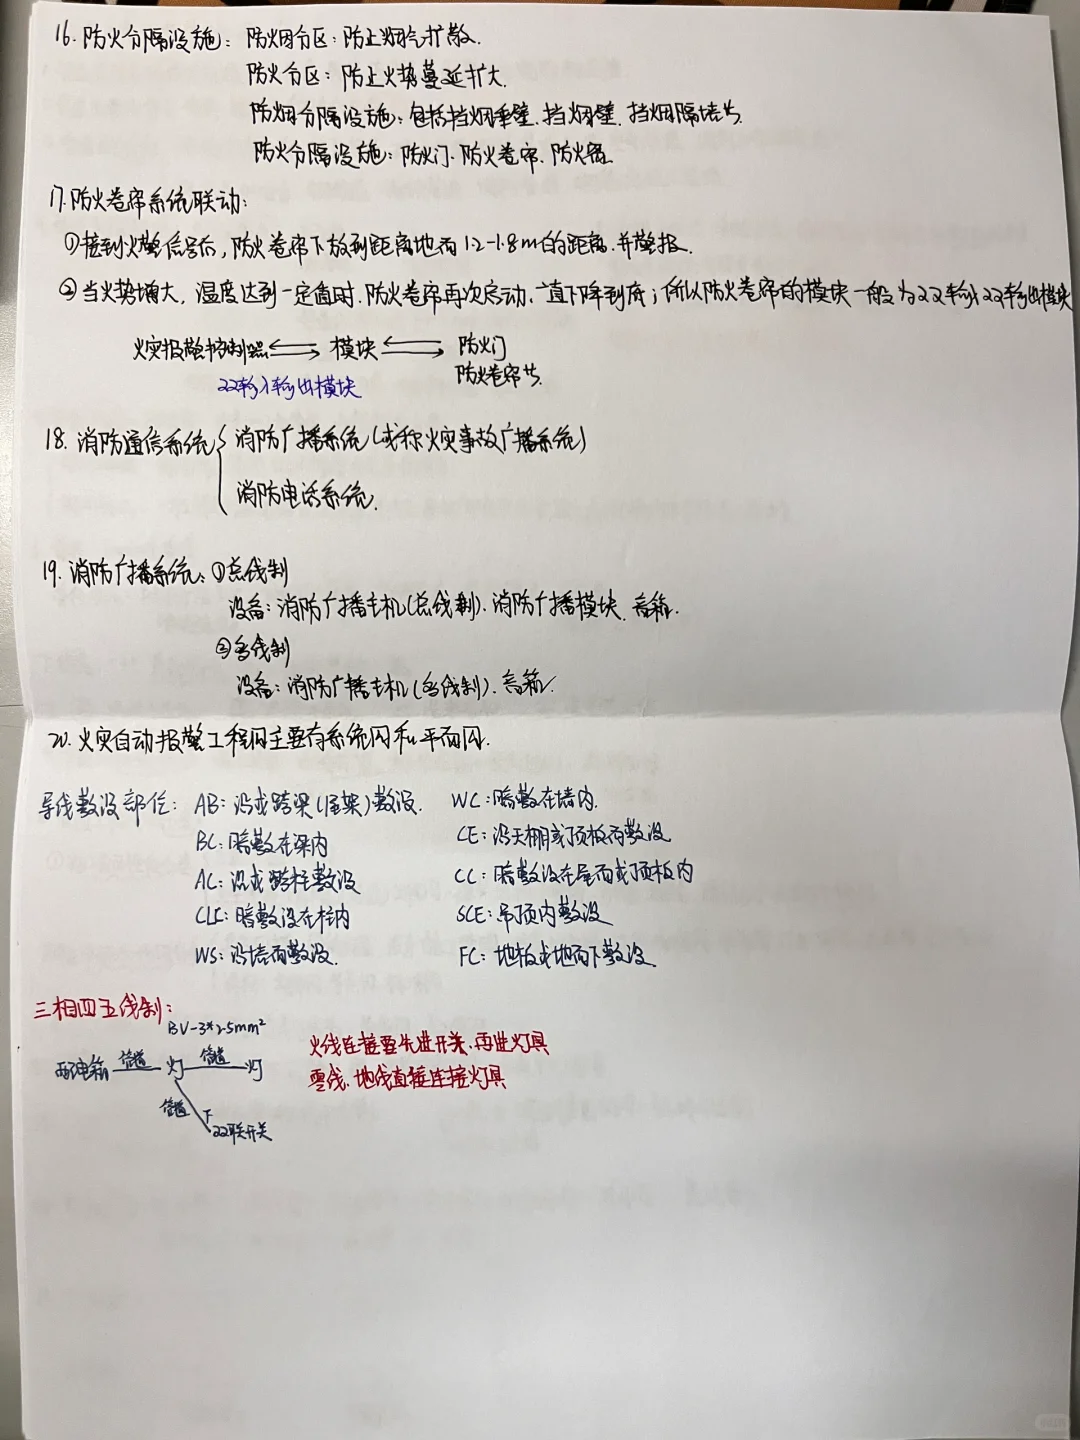 16. 防火分隔设施: 防烟分区: 防止烟气扩散.
防火分区: 防止火势蔓延扩大.
防烟分隔设施: 包括挡烟垂壁、挡烟壁、挡烟隔墙等.
防火分隔设施: 防火门、防火卷帘、防火窗
17. 防火卷帘系统联动:
①接到火警信号后, 防火卷帘下放到距离地面1.2-1.8m的距离.并警报.
②当火势增大, 温度达到一定值时.防火卷帘再次启动.一直下降到底; 所以防火卷帘的模块一般为22输入22输出模块
火灾报警控制器 ⇌ 模块 ⇌ 防火门
防火卷帘等.
22输入输出模块
18. 消防通信系统{ 消防广播系统(或称火灾事故广播系统)
消防电话系统.
19. 消防广播系统: ①总线制
设备: 消防广播主机(总线制). 消防广播模块、音箱.
②多线制
设备: 消防广播主机(多线制). 音箱.
20. 火灾自动报警工程图主要有系统图和平面图.
导线敷设部位: AB: 沿或跨梁(屋架)敷设. WC: 暗敷在墙内.
BC: 暗敷在梁内 CE: 沿天棚或顶板面敷设
AC: 沿或跨柱敷设 CC: 暗敷设在屋面或顶板内
CLC: 暗敷设在柱内 SCE: 吊顶内敷设
WS: 沿墙面敷设. FC: 地板或地面下敷设.
三相四五线制:
BV-3*2.5mm²
配电箱 管道 灯 管道 灯
管道 下
22联开关
火线连接要先进开关.再进灯具
零线.地线直接连接灯具